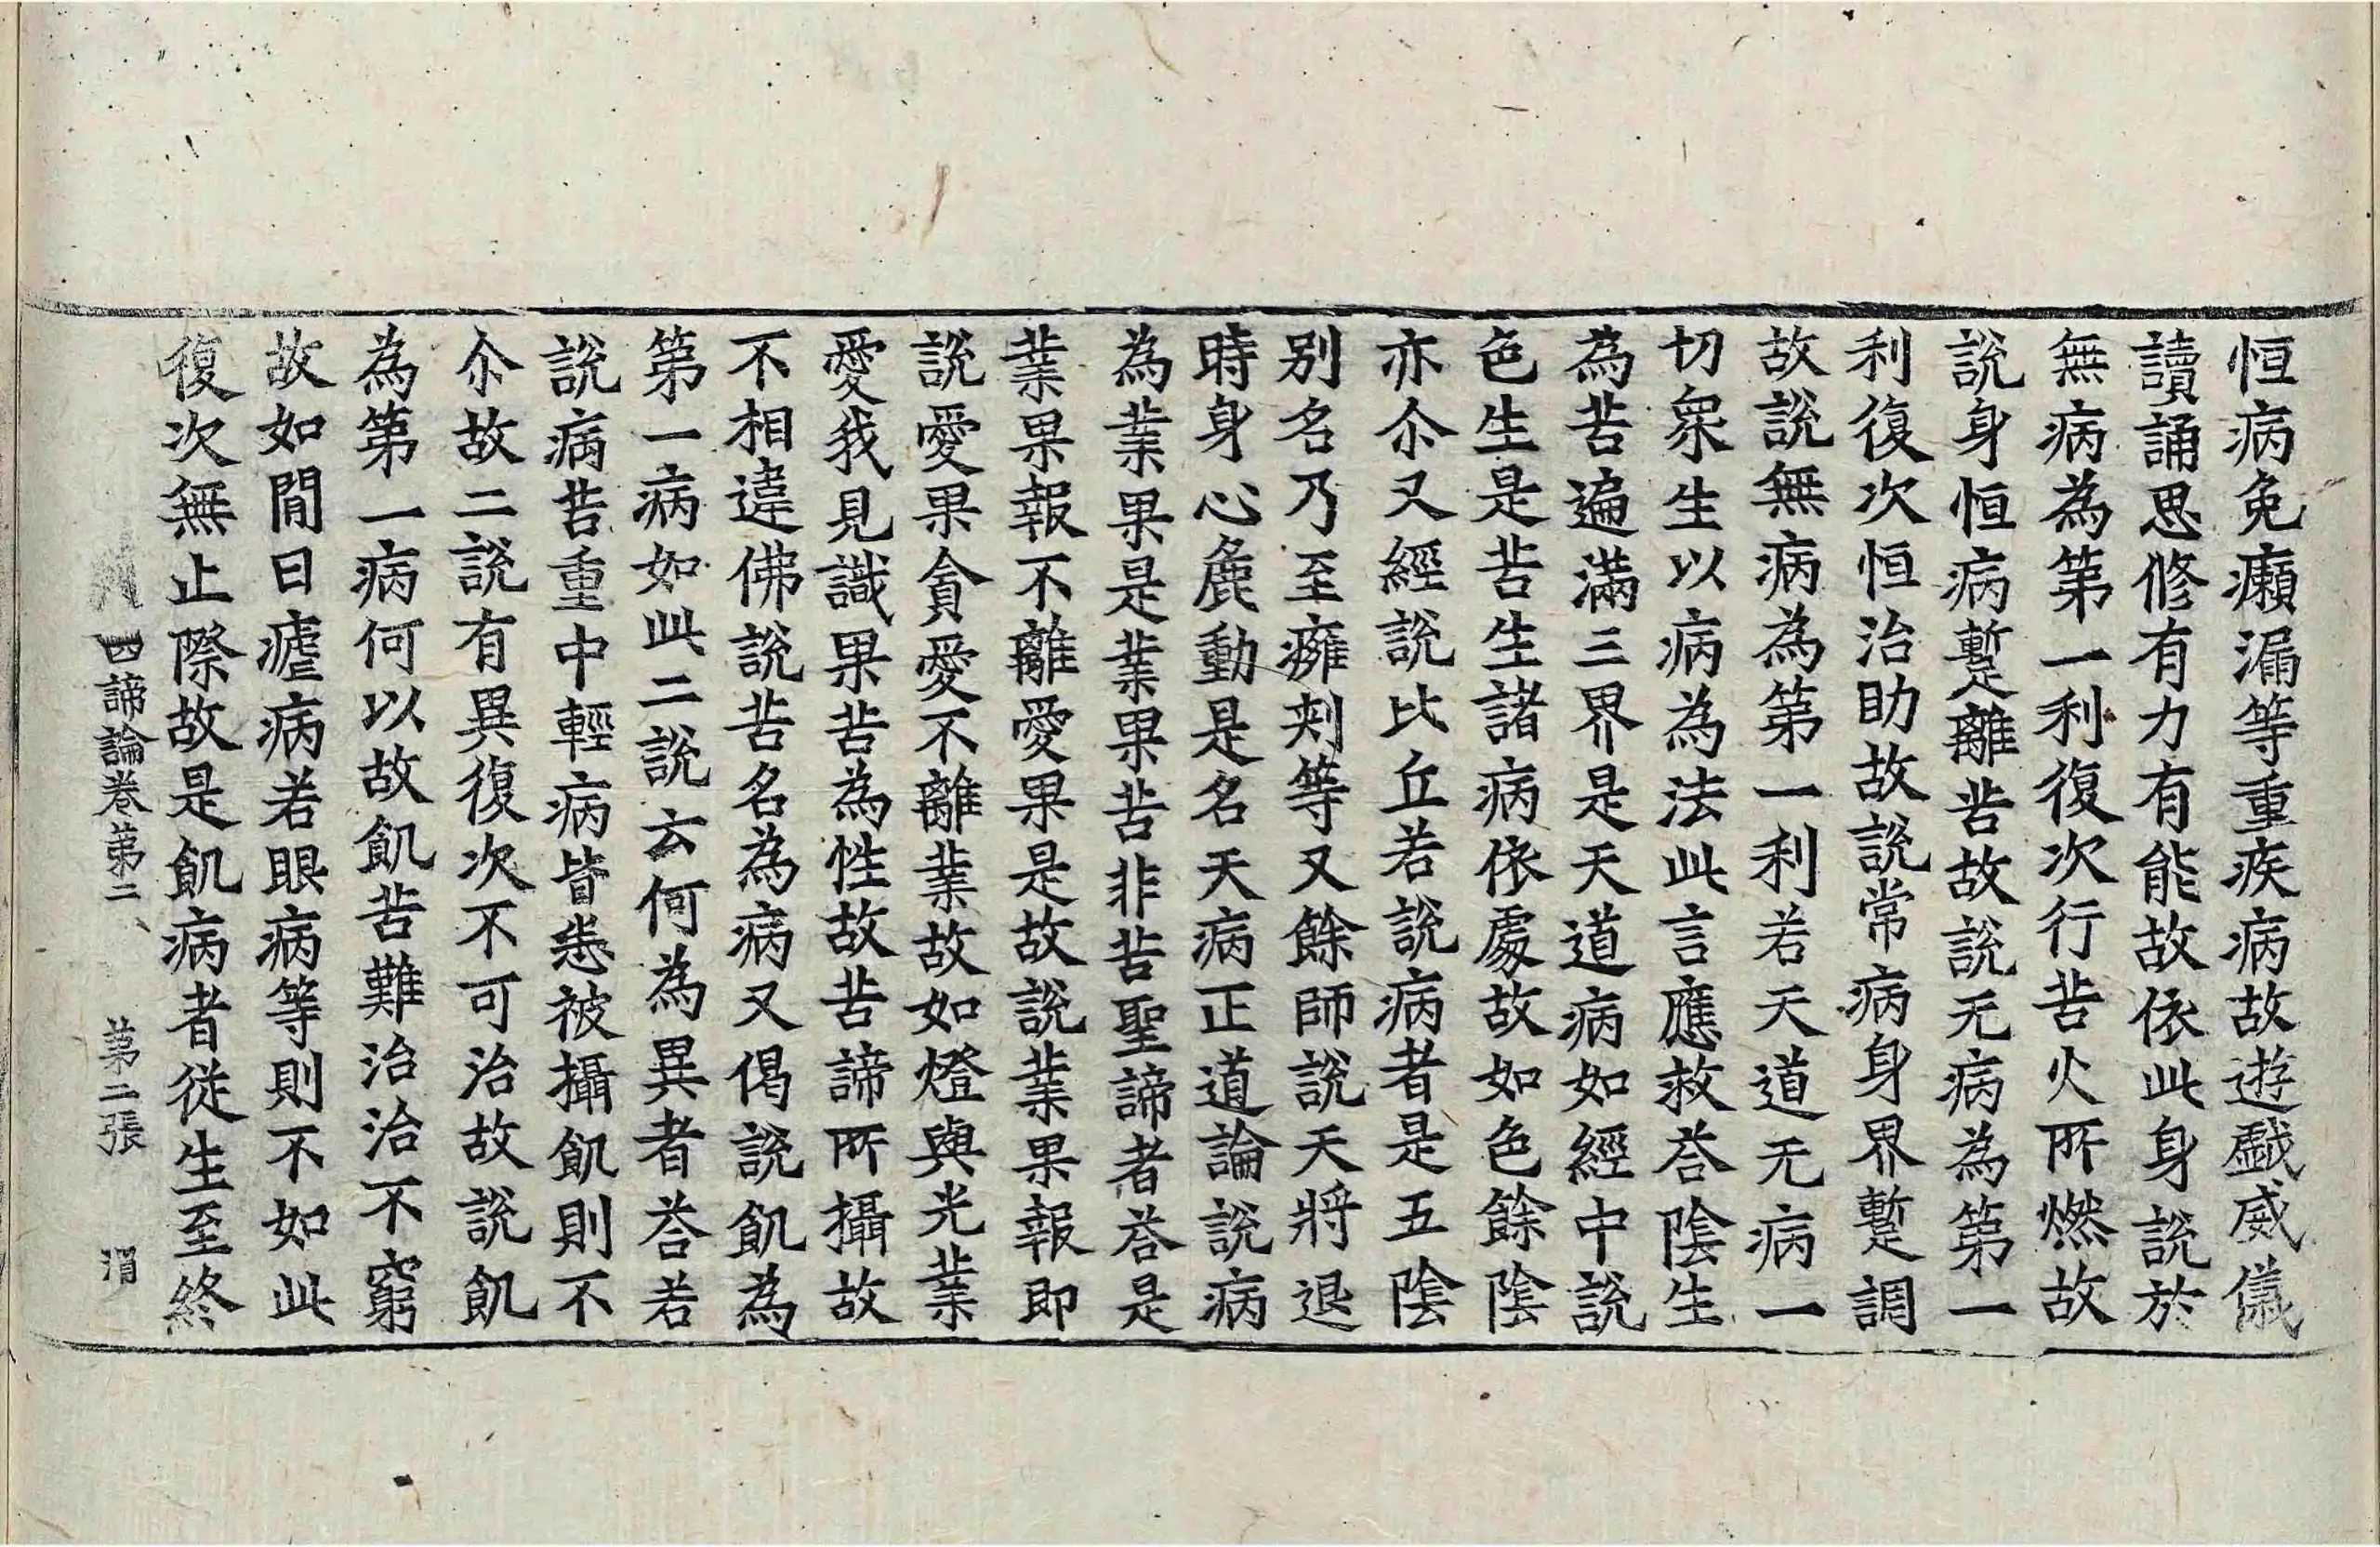 恒病免癩漏等重疾病故遊戱威儀
讀誦思修有力有能故依此身說於
無病為第一利復次行苦火所燃故
說身恒病蹔離苦故說无病為第一
利復次恒治助故說常病身界蹔調
故說無病為第一利若天道无病一
切衆生以病為法此言應救荅陰生
為苦遍滿三界是天道病如經中說
色生是苦生諸病依處故如色餘陰
亦尒又經說比丘若說病者是五陰
别名乃至癰刺等又餘師說天將退
時身心麁動是名天病正道論說病
為業果是業果苦非苦聖諦者荅是
業果報不離愛果是故說業果報即
說愛果貪愛不離業故如燈與光業
愛我見識果苦為性故苦諦所攝故
不相違佛說苦名為病又偈說飢為
第一病如此二說云何為異者荅若
說病苦重中輕病皆悉被攝飢則不
尒故二說有異復次不可治故說飢
為第一病何以故飢苦難治治不窮
故如閒日瘧病若眼病等則不如此
復次無止際故是飢病者從生至終
四諦論卷第二 第二張 渭